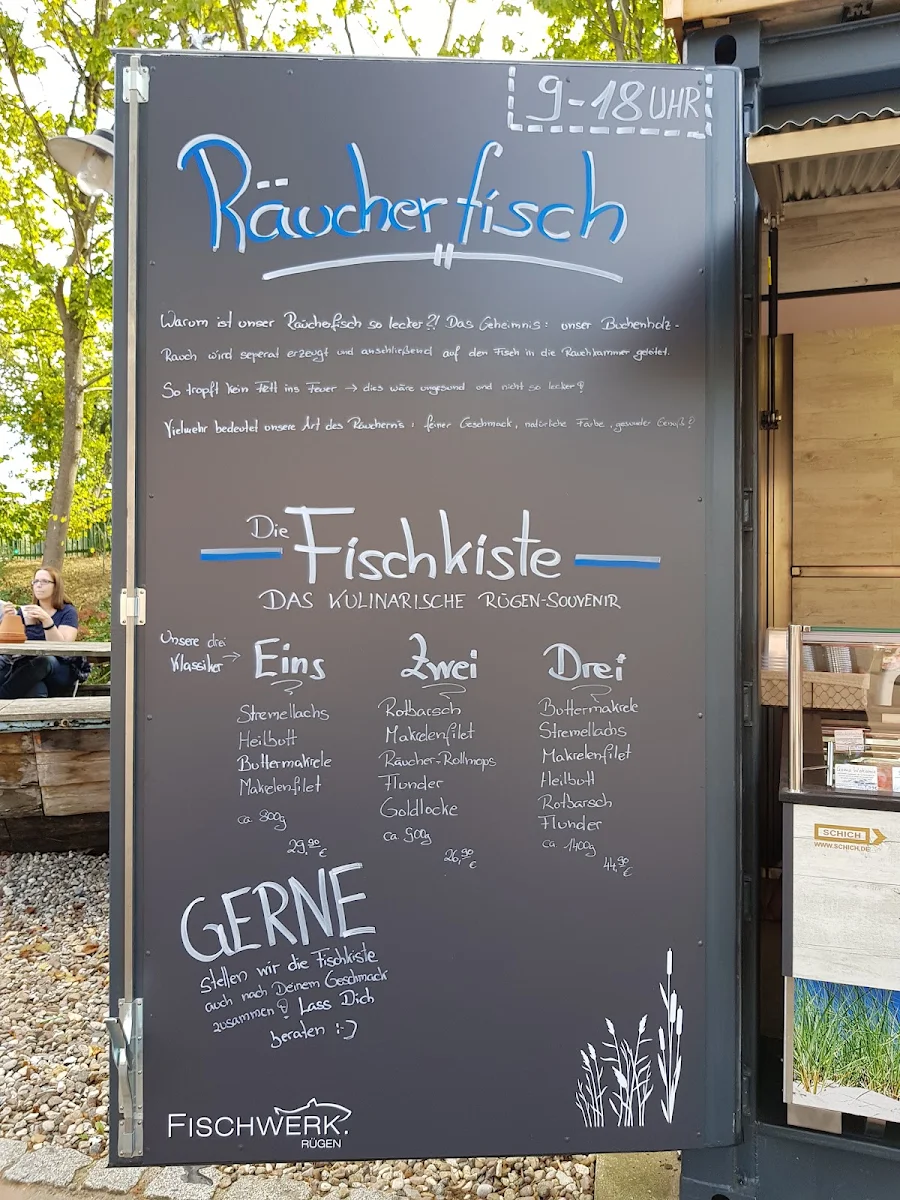 9-18 UHR
Räucherfisch
Warum ist unser Räucherfisch so lecker?! Das Geheimnis: unser Buchenholz-
Rauch wird seperat erzeugt und anschließend auf den Fisch in die Rauchkammer geleitet.
So tropft kein Fett ins Feuer → dies wäre ungesund und nicht so lecker!
Vielmehr bedeutet unsere Art des Räucherns: feiner Geschmack, natürliche Farbe, gesunder Genuß!
Die Fischkiste
DAS KULINARISCHE RÜGEN-SOUVENIR
Unsere drei
Klassiker →
Eins
Stremellachs
Heilbutt
Buttermakrele
Makrelenfilet
ca. 800g
29,90 €
Zwei
Rotbarsch
Makrelenfilet
Räucher-Rollmops
Flunder
Goldlocke
ca. 900g
26,90 €
Drei
Buttermakrele
Stremellachs
Makrelenfilet
Heilbutt
Rotbarsch
Flunder
ca. 1400g
44,90 €
GERNE
stellen wir die Fischkiste
auch nach Deinem Geschmack
zusammen! Lass Dich
beraten :-)
FISCHWERK.
RÜGEN
SCHICH
WWW.SCHICH.DE